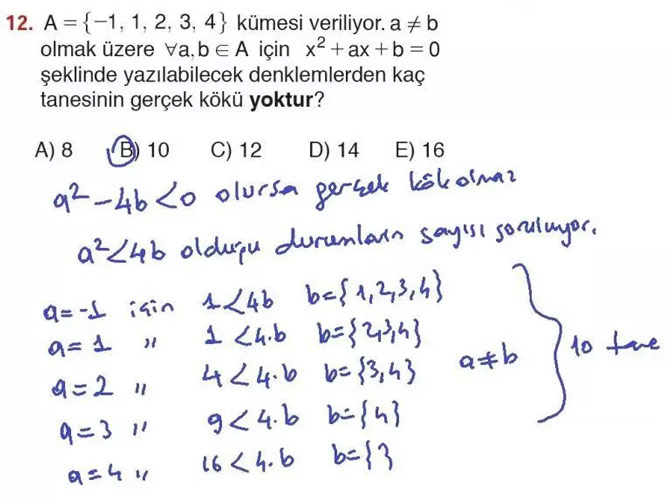 12. A = {−1, 1, 2, 3, 4} kümesi veriliyor. a ≠ b
olmak üzere ∀a, b ∈ A için x² + ax + b = 0
şeklinde yazılabilecek denklemlerden kaç
tanesinin gerçek kökü yoktur?
A) 8 B) 10 C) 12 D) 14 E) 16
a² − 4b < 0 olursa gerçek kök olmaz
a² < 4b olduğu durumların sayısı soruluyor.
a = −1 için 1 < 4b b = {1, 2, 3, 4}
a = 1 〃 1 < 4.b b = {2, 3, 4}
a = 2 〃 4 < 4.b b = {3, 4} a ≠ b } 10 tane
a = 3 〃 9 < 4.b b = {4}
a = 4 〃 16 < 4.b b = { }